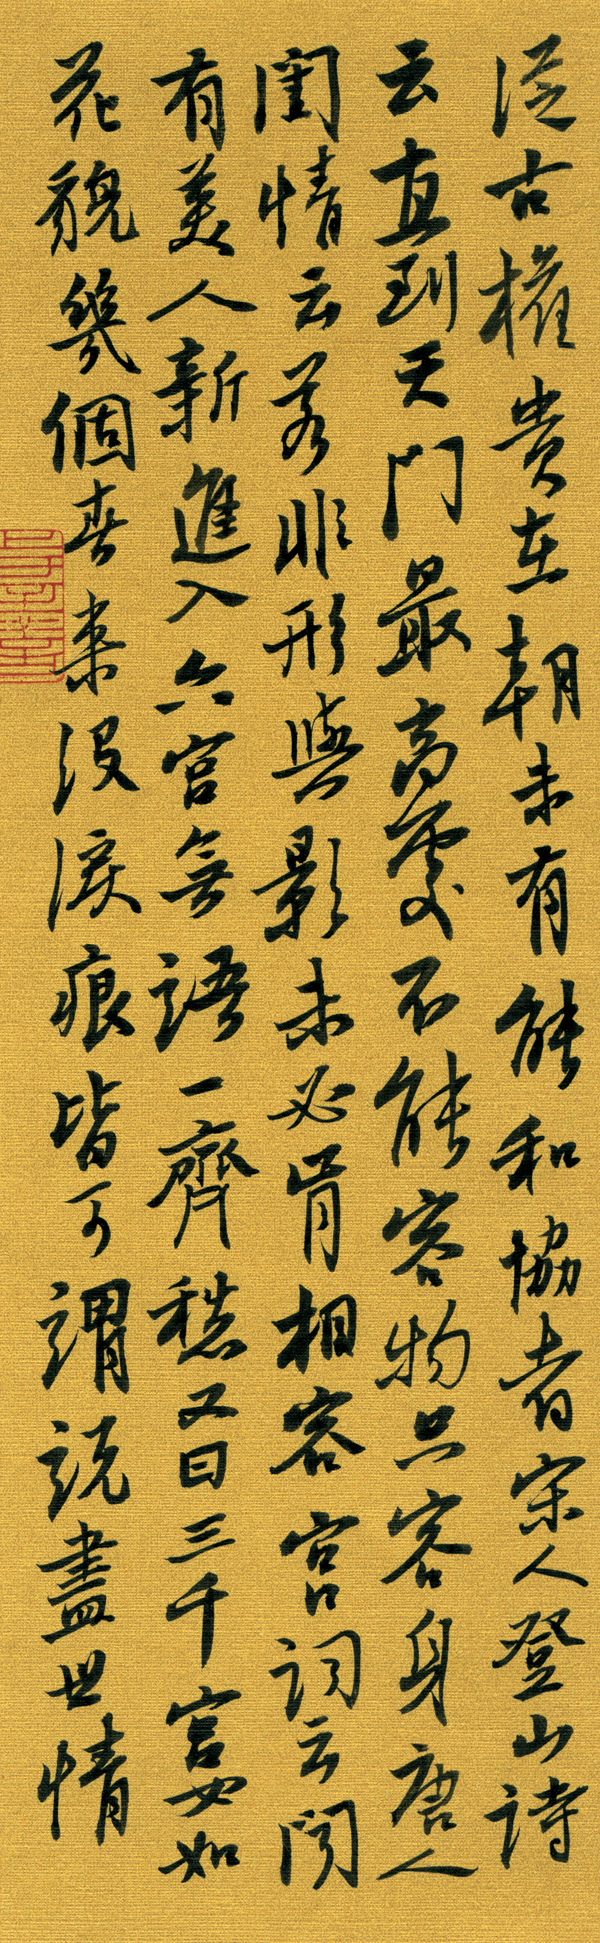 從古權貴在朝未有能和協者宋人登山詩
云直到天門最高處不能容物只容身唐人
閨情云若非形與影未必肯相容宮詞云聞
有美人新進入六宮無語一齊愁又曰三千宮女如
花貌幾個春來沒淚痕皆可謂說盡世情